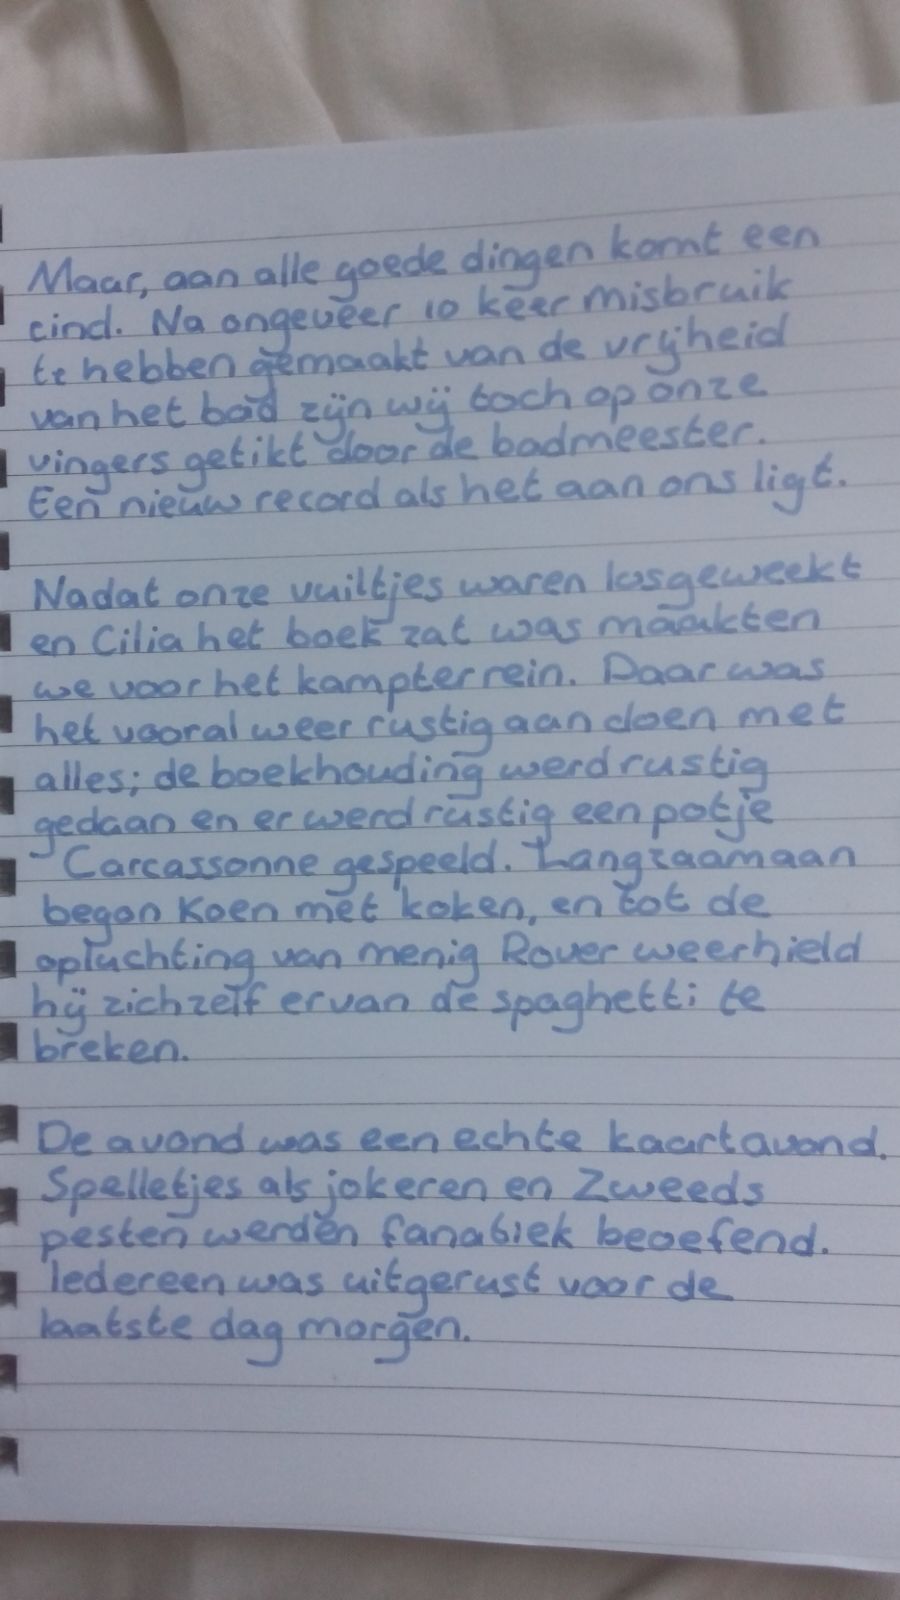 Maar, aan alle goede dingen komt een
eind. Na ongeveer 10 keer misbruik
te hebben gemaakt van de vrijheid
van het bad zijn wij toch op onze
vingers getikt door de badmeester.
Een nieuw record als het aan ons ligt.
Nadat onze vuiltjes waren losgeweekt
en Cilia het boek zat was maakten
we voor het kampterrein. Daar was
het vooral weer rustig aan doen met
alles; de boekhouding werd rustig
gedaan en er werd rustig een potje
Carcassonne gespeeld. Langzaam aan
begon Koen met koken, en tot de
opluchting van menig Rover weerhield
hij zichzelf ervan de spaghetti te
breken.
De avond was een echte kaartavond.
Spelletjes als jokeren en Zweeds
pesten werden fanatiek beoefend.
Iedereen was uitgerust voor de
laatste dag morgen.